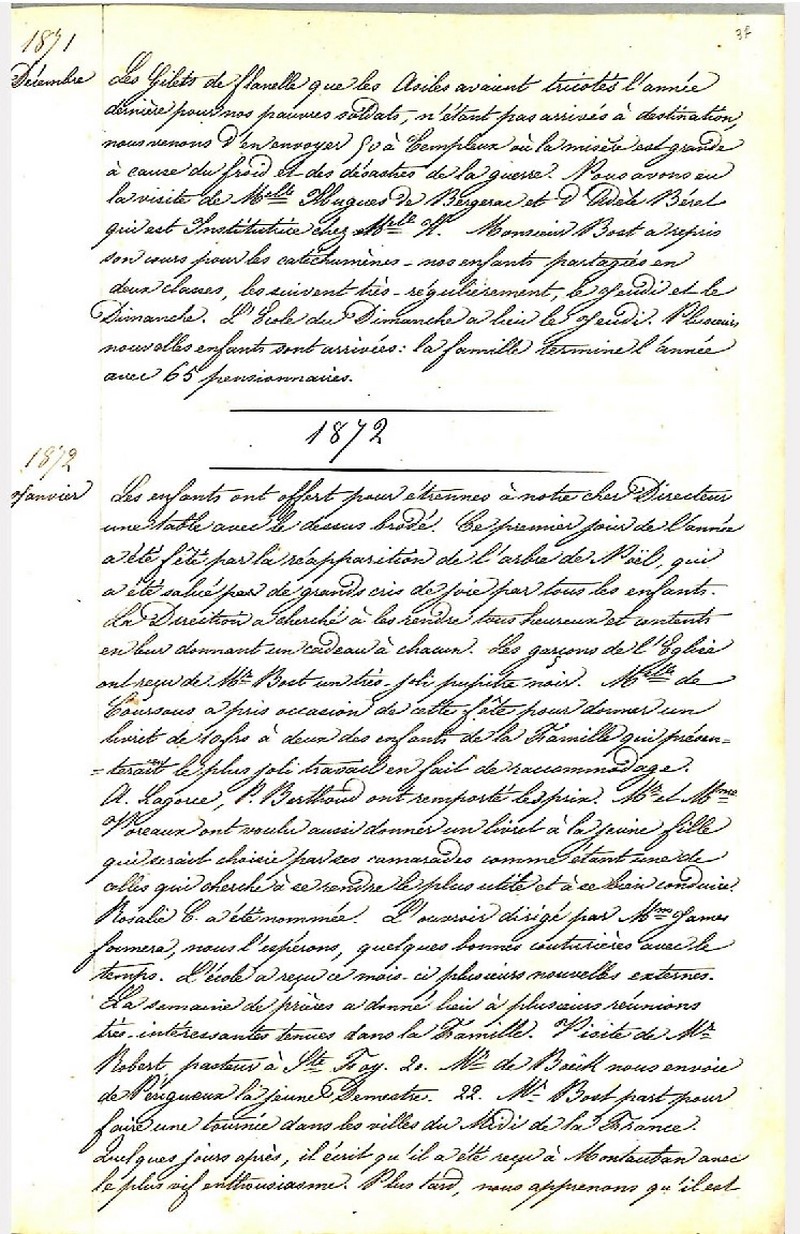 37
1871
Décembre
Les Gilets de flanelle que les Asiles avaient tricotés l'année
dernière pour nos pauvres soldats, n'étant pas arrivés à destination,
nous venons d'en envoyer 50 à Templeux où la misère est grande
à cause du froid et des désastres de la guerre. Nous avons eu
la visite de Melle Hugues de Bergerac et d'Adèle Bérel
qui est Institutrice chez Melle H. Monsieur Bost a repris
son cours pour les catéchumènes - nos enfants partagées en
deux classes, les suivent très-régulièrement, le Jeudi et le
Dimanche. L'Ecole du Dimanche a lieu le Jeudi. Plusieurs
nouvelles enfants sont arrivées: la famille termine l'année
avec 65 pensionnaires.
1872
1872
Janvier
Les enfants ont offert pour étrennes à notre cher Directeur
une table avec le dessus brodé. Ce premier jour de l'année
a été fêté par la réapparition de l'arbre de Noël, qui
a été salué par de grands cris de joie par tous les enfants.
La Direction a cherché à les rendre tous heureux et contents
en leur donnant un cadeau à chacun. Les garçons de l'Eglise
ont reçu de Mr Bost un très-joli pupitre noir. Melle de
Coursous a pris occasion de cette fête pour donner un
livret de 10 frs à deux des enfants de la Famille qui présen=
=teraient le plus joli travail en fait de raccommodage.
A. Lagorce, P. Berthoud ont remporté les prix. Mr et Mme
Voreaux ont voulu aussi donner un livret à la jeune fille
qui serait choisie par ses camarades comme étant une de
celles qui cherche à se rendre le plus utile et à se bien conduire.
Rosalie C. a été nommée. L'ouvroir dirigé par Mme James
formera, nous l'espérons, quelques bonnes couturières avec le
temps. L'école a reçu ce mois-ci plusieurs nouvelles externes.
La semaine de prières a donné lieu à plusieurs réunions
très-intéressantes tenues dans la Famille. Visite de Mr
Robert, pasteur à Ste Foy. 20. Mr de Boëck nous envoie
de Périgueux la jeune Demestre. 22. Mr Bost part pour
faire une tournée dans les villes du Midi de la France.
Quelques jours après, il écrit qu'il a été reçu à Montauban avec
le plus vif enthousiasme. Plus tard, nous apprenons qu'il est